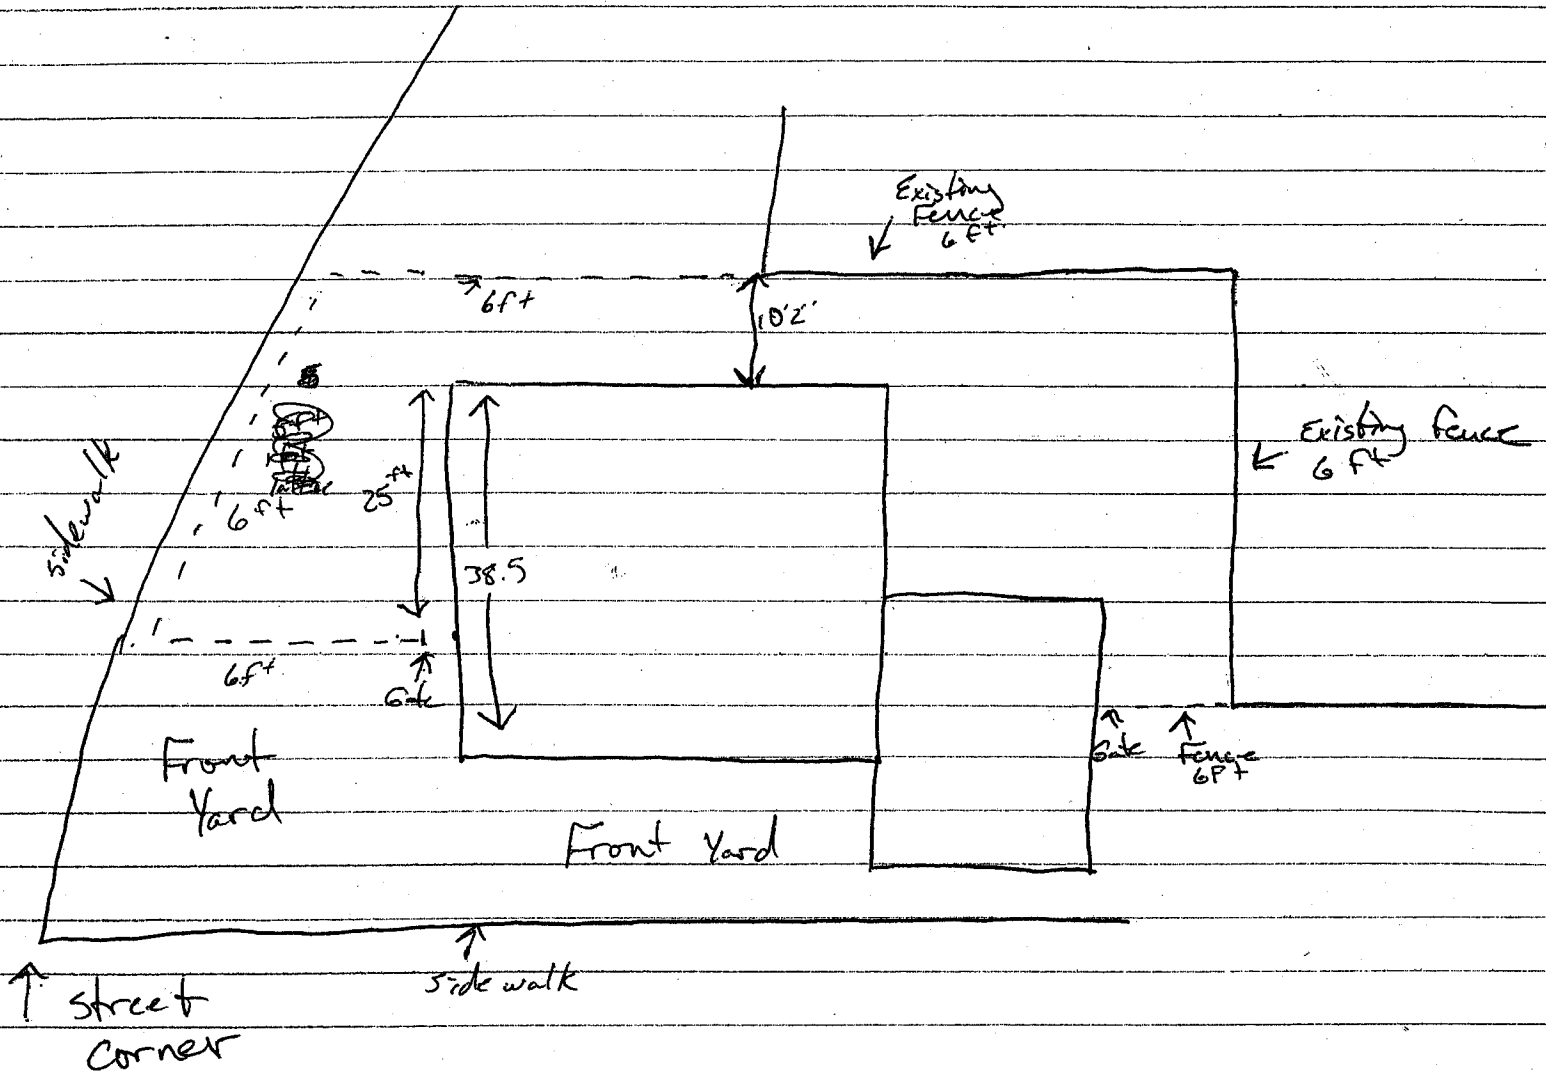 Existing
Fence
6 ft
6ft
10'2"
Existing fence
6 ft
sidewalk
6 ft
25 ft
38.5
6ft
Gate
Gate
Fence
6ft
Front
Yard
Front Yard
sidewalk
street
corner